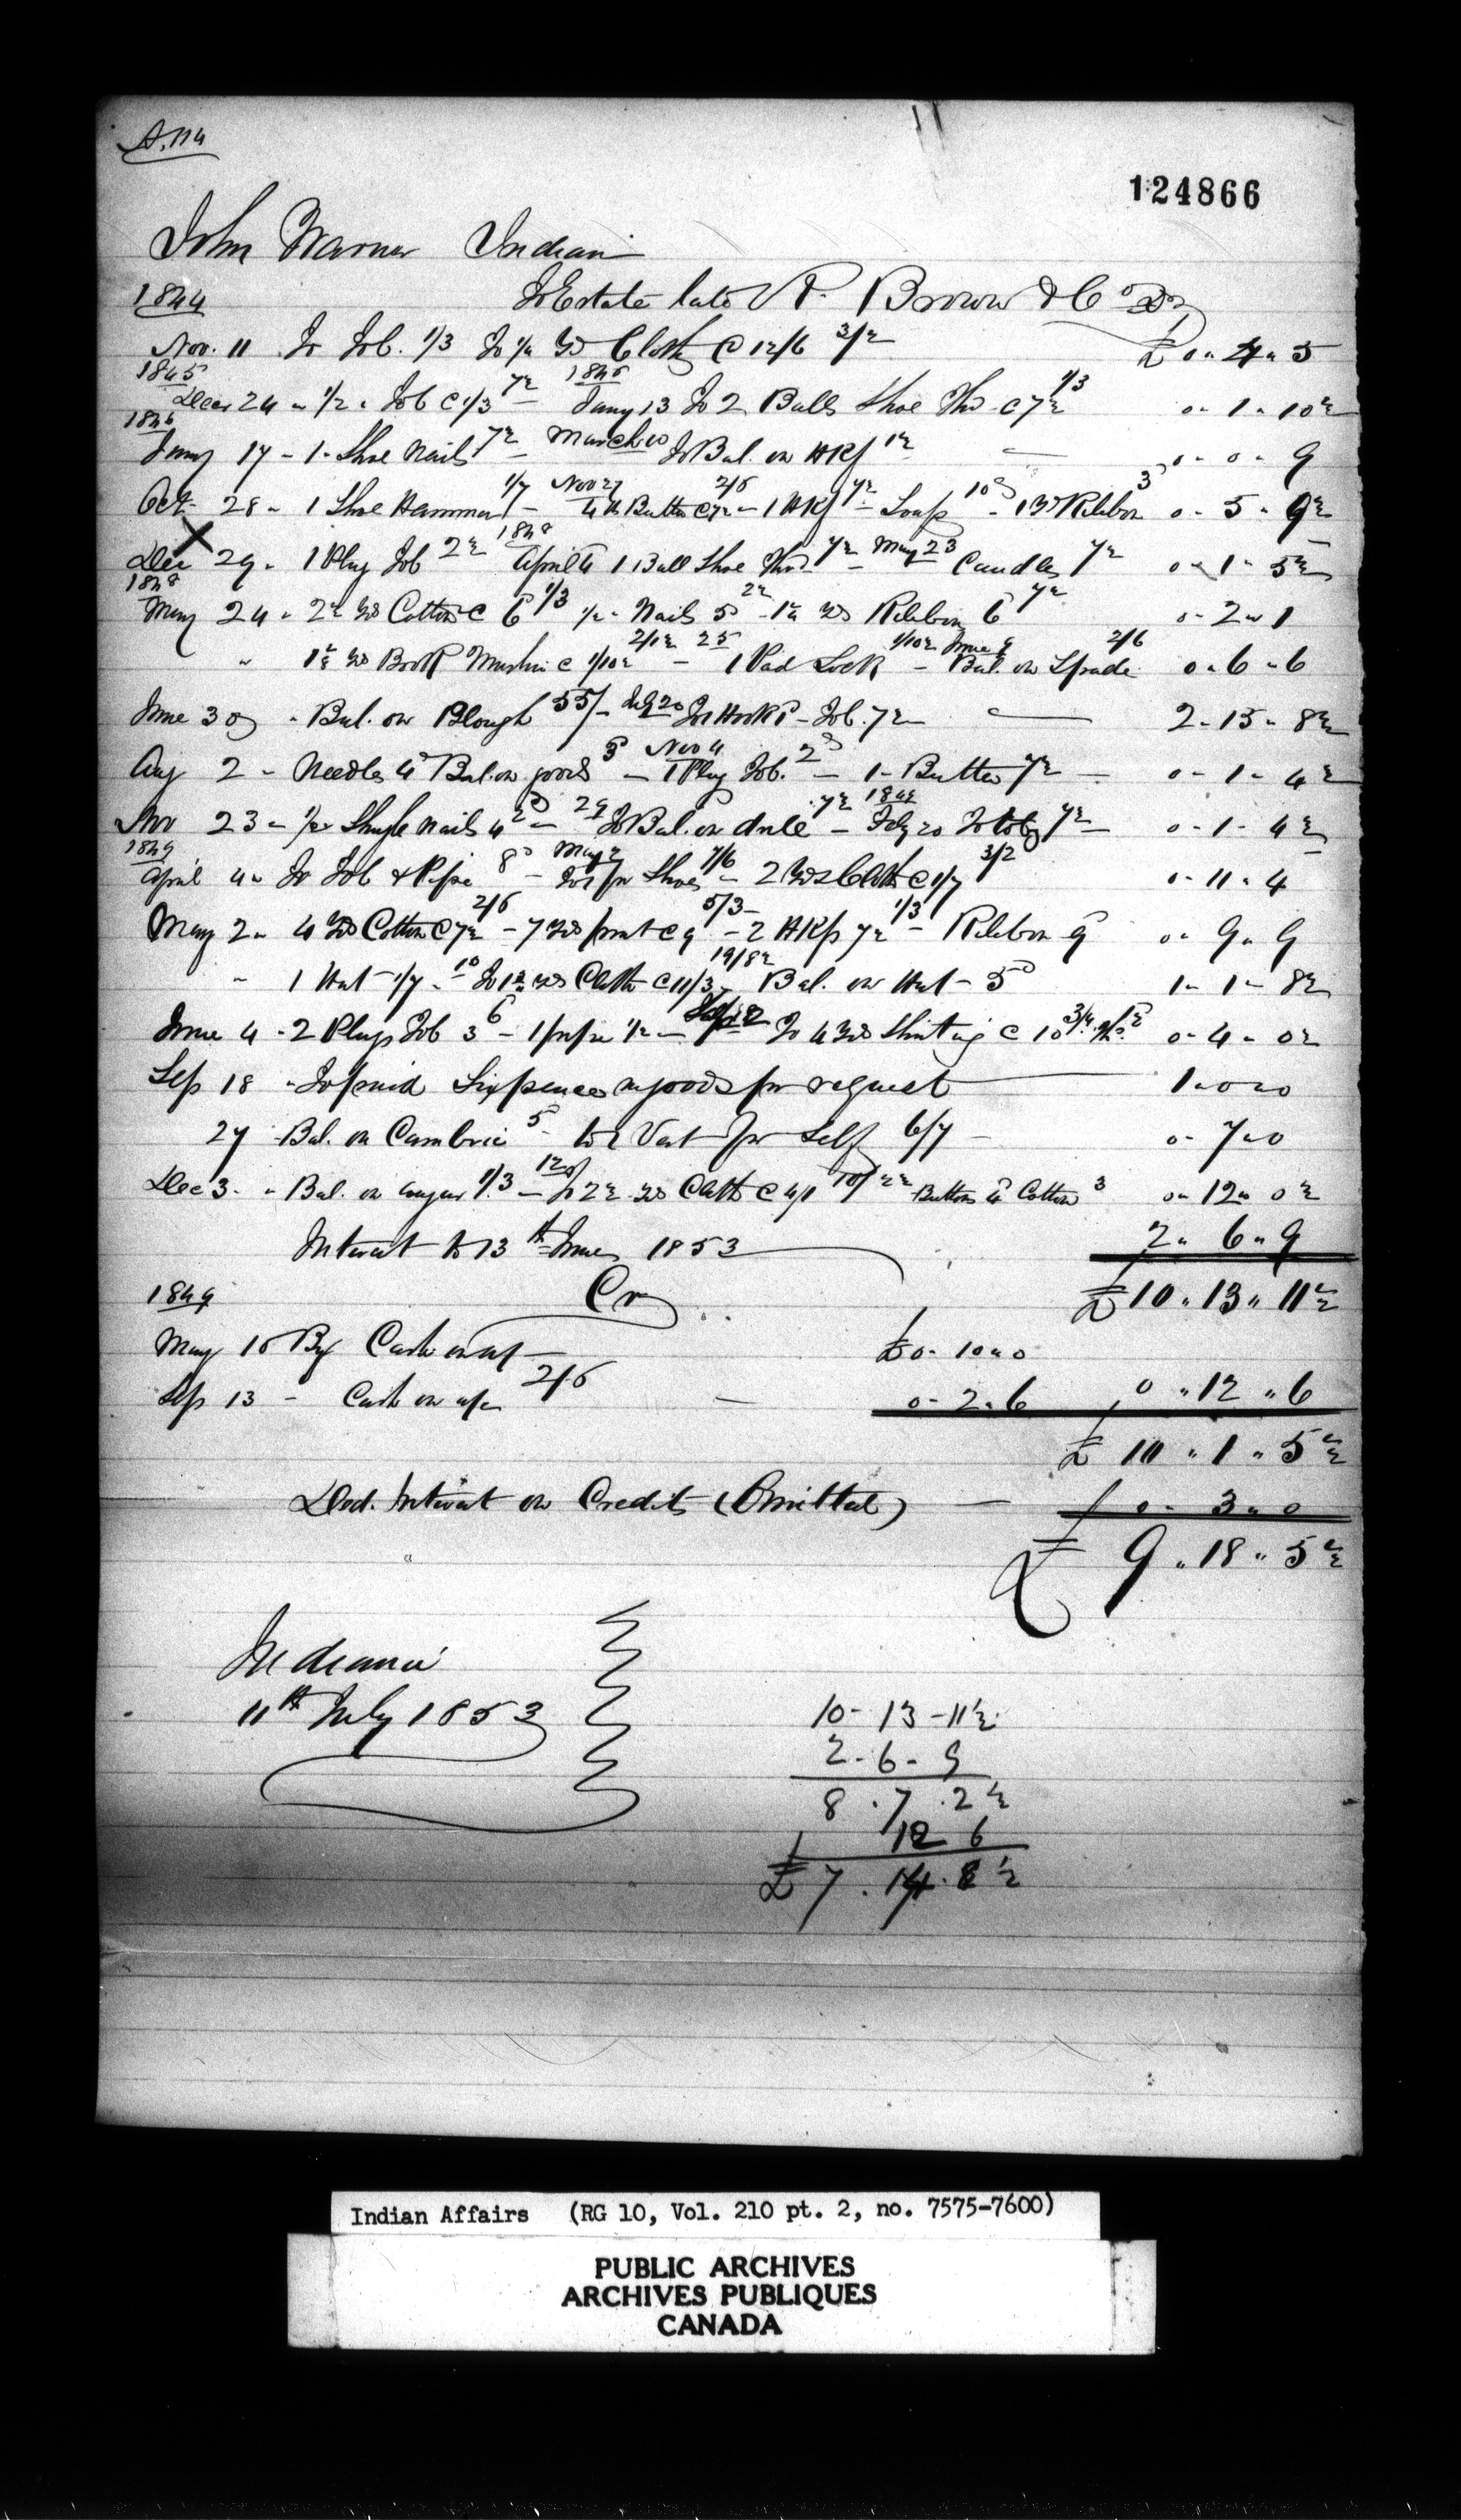 124866
John Warner Indian
1844 To Estate late P. Brown & Co Dr
Nov. 11 To Tob. 1/3 To 1/4 Yd Cloth @ 12/6 3/2 £ 0 " 4 " 5
1845 1846
Decr 24 " 1/2 " Tob @ 1/3 7½ – Jany 13 To 2 Balls Shoe Thd @ 7½ 1/3 0 " 1 " 10½
1846
Jany 17 – 1 – Shoe Nails 7½ – March 10 To Bal. on HKf 1½ — 0 " 0 " 9
Oct 28 " 1 Shoe Hammer 1/7 – Nov 27 4 lb Butter @ 7½ 2/6 – 1 HKf 7½ – Soap 10d – 1 Yd Ribbon 3d 0 " 5 " 9½
X
Dec 29 " 1 Plug Tob 2½ 1848 April 4 1 Ball Shoe Thd 7½ – May 23 Candles 7½ 0 " 1 " 5½
1848
May 24 " 2½ Yds Cotton @ 6d 1/3 ½ " Nails 5d 2½ 1¼ Yds Ribbon 6 7½ 0 " 2 " 1
" 1½ Yds Book Muslin @ 1/10½ 25 – 1 Pad Lock 1/10½ June – Bal. on Spade 2/6 0 " 6 " 6
June 30 " Bal. on Plough 55/ – – Tob. 7½ — 2 " 15 " 8½
Aug 2 – Needles 4d Bal. on goods 3d – Nov 4 1 Plug Tob. 2d – 1 – Butter 7½ — 0 " 1 " 4½
Nov 23 " ½ Shingle Nails 4 2d – 29 To Bal. on 7½ – Feby 20 To 7½ 0 " 1 " 4½
1849
April 4 " To Tob & Pipe 8d – May 2 To 1 pr Shoes 7/6 – 2 Yds Cloth @ 1/7 3/2 0 " 11 " 4
May 2 " 4 Yds Cotton @ 7½ 2/6 – 7 Yds print @ 9 5/3 – 2 HKfs 7½ 1/3 – Ribbon 9 0 " 9 " 9
" 1 Hat 1/7 " 10 To 1¾ Yds Cloth @ 11/3 19/8½ Bal. on Hat – 5d 1 " 1 " 8½
June 4 – 2 Plugs Tob 3 6 – 1 pipe ½ – To 4 Yds Shirting @ 10 0 " 4 " 0½
Sep 18 " To paid Sixpence in goods pr request — 1 " 0 " 0
27 – Bal. on Cambric 5d – to 1 Vest for Self 6/7 – 0 " 7 " 0
Dec 3 " Bal. on sugar 1/3 – 12 To 2½ Yds Cloth @ 4/1 10/2½ Buttons 4d Cotton 3 0 " 12 " 0½
Interest to 13th June 1853 2 " 6 " 9
1849 Cr £ 10 " 13 " 11½
May 10 By Cash on a/c — £ 0 – 10 " 0
Sep 13 – Cash on a/c 2/6 — 0 – 2 " 6 0 " 12 " 6
£ 10 " 1 " 5½
Ded. Interest on Credits (Omitted) — 0 " 3 " 0
£ 9 " 18 " 5½
Indiana
11th July 1853
10 – 13 – 11½
2 – 6 – 9
8 . 7 . 2½
12 6
£ 7 . 14 . 8½
Indian Affairs (RG 10, Vol. 210 pt. 2, no. 7575-7600)
PUBLIC ARCHIVES
ARCHIVES PUBLIQUES
CANADA